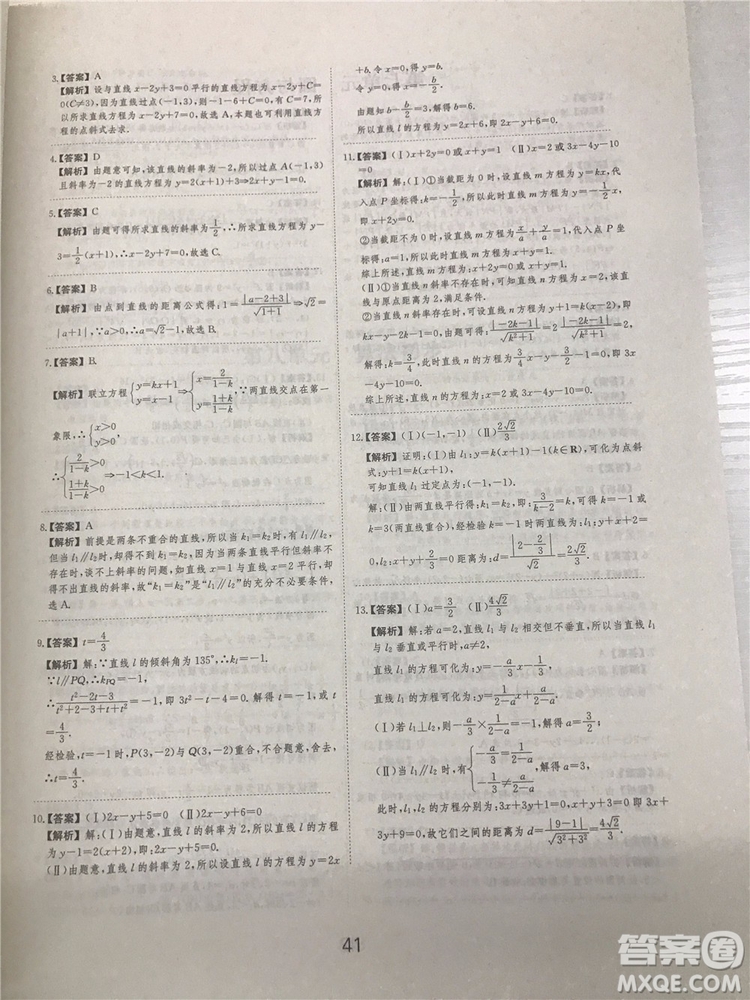 3.【答案】A
【解析】设与直线x-2y+3=0平行的直线方程为x-2y+C=
0(C≠3),因为直线过点(-1,3),则-1-6+C=0,有C=7,所
以所求直线方程为x-2y+7=0,故选A,本题也可利用直线方
程的点斜式去求.
4.【答案】D
【解析】由题意可知,该直线的斜率为-2,所以过点A(-1,3)
且斜率为-2的直线方程为y=-2(x+1)+3⇒2x+y-1=0.
5.【答案】C
【解析】由题可得所求直线的斜率为1/2,∴所求直线方程为y-
3=1/2(x+1),∴x-2y+7=0,故选C.
6.【答案】B
【解析】由点到直线的距离公式得:1=|a-2+3|/√(1+1)⇒√2=
|a+1|,∵a>0,∴a=√2-1,故选B.
7.【答案】B.
【解析】联立方程{y=kx+1, y=x-1⇒{x=2/(1-k), y=(1+k)/(1-k),∵两直线交点在第一
象限,∴{x>0, y>0,
∴{2/(1-k)>0, (1+k)/(1-k)>0⇒-1<k<1.
8.【答案】A
【解析】前提是两条不重合的直线,所以当k₁=k₂时,有l₁∥l₂,
但当l₁∥l₂时,不一定有k₁=k₂.因为当两条直线平行但斜率不
存在时,谈不上斜率的问题,如直线x=1与直线x=3,斜率不存
在,何来斜率相等.故“k₁=k₂”是“l₁∥l₂”的充分不必要条件,
选A.
9.【答案】t=4/3
【解析】解:∵直线l的倾斜角为135°,∴kₗ=-1.
∵l∥PQ,∴k_PQ=-1.
∴(t²-2t-3)/(t²+2-3+t+t²)=-1,即3t²-t-4=0.解得t=-1或t
=4/3.
经检验,t=-1时,P(3,-2)与Q(3,-2)重合,不合题意,舍去,
∴t=4/3.
10.【答案】(Ⅰ)2x-y+5=0 (Ⅱ)2x-y+6=0
【解析】解:(Ⅰ)由题意,直线l的斜率为2,所以直线l的方程
为y-1=2(x+2),即:2x-y+5=0.
(Ⅱ)由题意,直线l的斜率为2,所以设直线l的方程为y=2x
+b,令x=0,得y=b;
令y=0,得x=-b/2.
由题知b-b/2=3,解得b=6.
所以直线l的方程为y=2x+6,即2x-y+6=0.
11.【答案】(Ⅰ)x+2y=0或x+y=1 (Ⅱ)x=2或3x-4y-10
=0
【解析】解:(Ⅰ)①当截距为0时,设直线m方程为y=kx,代
入点P坐标得:k=-1/2,所以此时直线m方程为y=-1/2x,
即x+2y=0;
②当截距不为0时,设直线m方程为x/a+y/a=1,代入点P坐
标得:a=1,所以此时直线m方程为x+y-1=0.
综上所述,直线m方程为x+2y=0或x+y=1.
(Ⅱ)①当直线n斜率不存在时,可知直线方程为x=2,该直
线与原点距离为2,满足条件.
②当直线n斜率存在时,可设直线n方程为y+1=k(x-2),即
kx-y-2k-1=0,由题可得|-2k-1|/√(k²+1)=2,
解得:k=3/4,此时直线n的方程为y+1=3/4(x-2),即:3x
-4y-10=0.
综上所述,直线n方程为:x=2或3x-4y-10=0.
12.【答案】(Ⅰ)(-1,-1) (Ⅱ)2√2/3
【解析】证明:(Ⅰ)由l₁:y=k(x+1)-1(k∈R),可化为点斜
式:y+1=k(x+1),
可知直线l₁过定点为:(-1,-1).
解:(Ⅱ)由两直线平行得:k₁=k₂,即:3/(k-2)=k,可得k=-1
或k=3(两直线重合),经检验k=-1时成立,∴l₁:x+y+2=
0,l₂:x+y+2/3=0距离为:d=|2-2/3|/√2=2√2/3.
13.【答案】(Ⅰ)a=3/2 (Ⅱ)4√2/3
【解析】解:若a=2,直线l₁与l₂相交但不垂直,所以当直线l₁
与l₂垂直或平行时,a≠2.
直线l₁的方程可化为y=-a/3x-1/3,
直线l₂的方程可化为y=1/(2-a)x-a/(2-a).
(Ⅰ)若l₁⊥l₂,则-a/3×1/(2-a)=-1解得a=3/2;
(Ⅱ)当l₁∥l₂时,有{-a/3=1/(2-a), -1/3≠-a/(2-a),解得a=3,
此时,l₁,l₂的方程分别为:3x+3y+1=0,x+y+3=0即3x+
3y+9=0,故它们之间的距离为d=|9-1|/√(3²+3²)=4√2/3.
41
答案圈
MXQE.COM